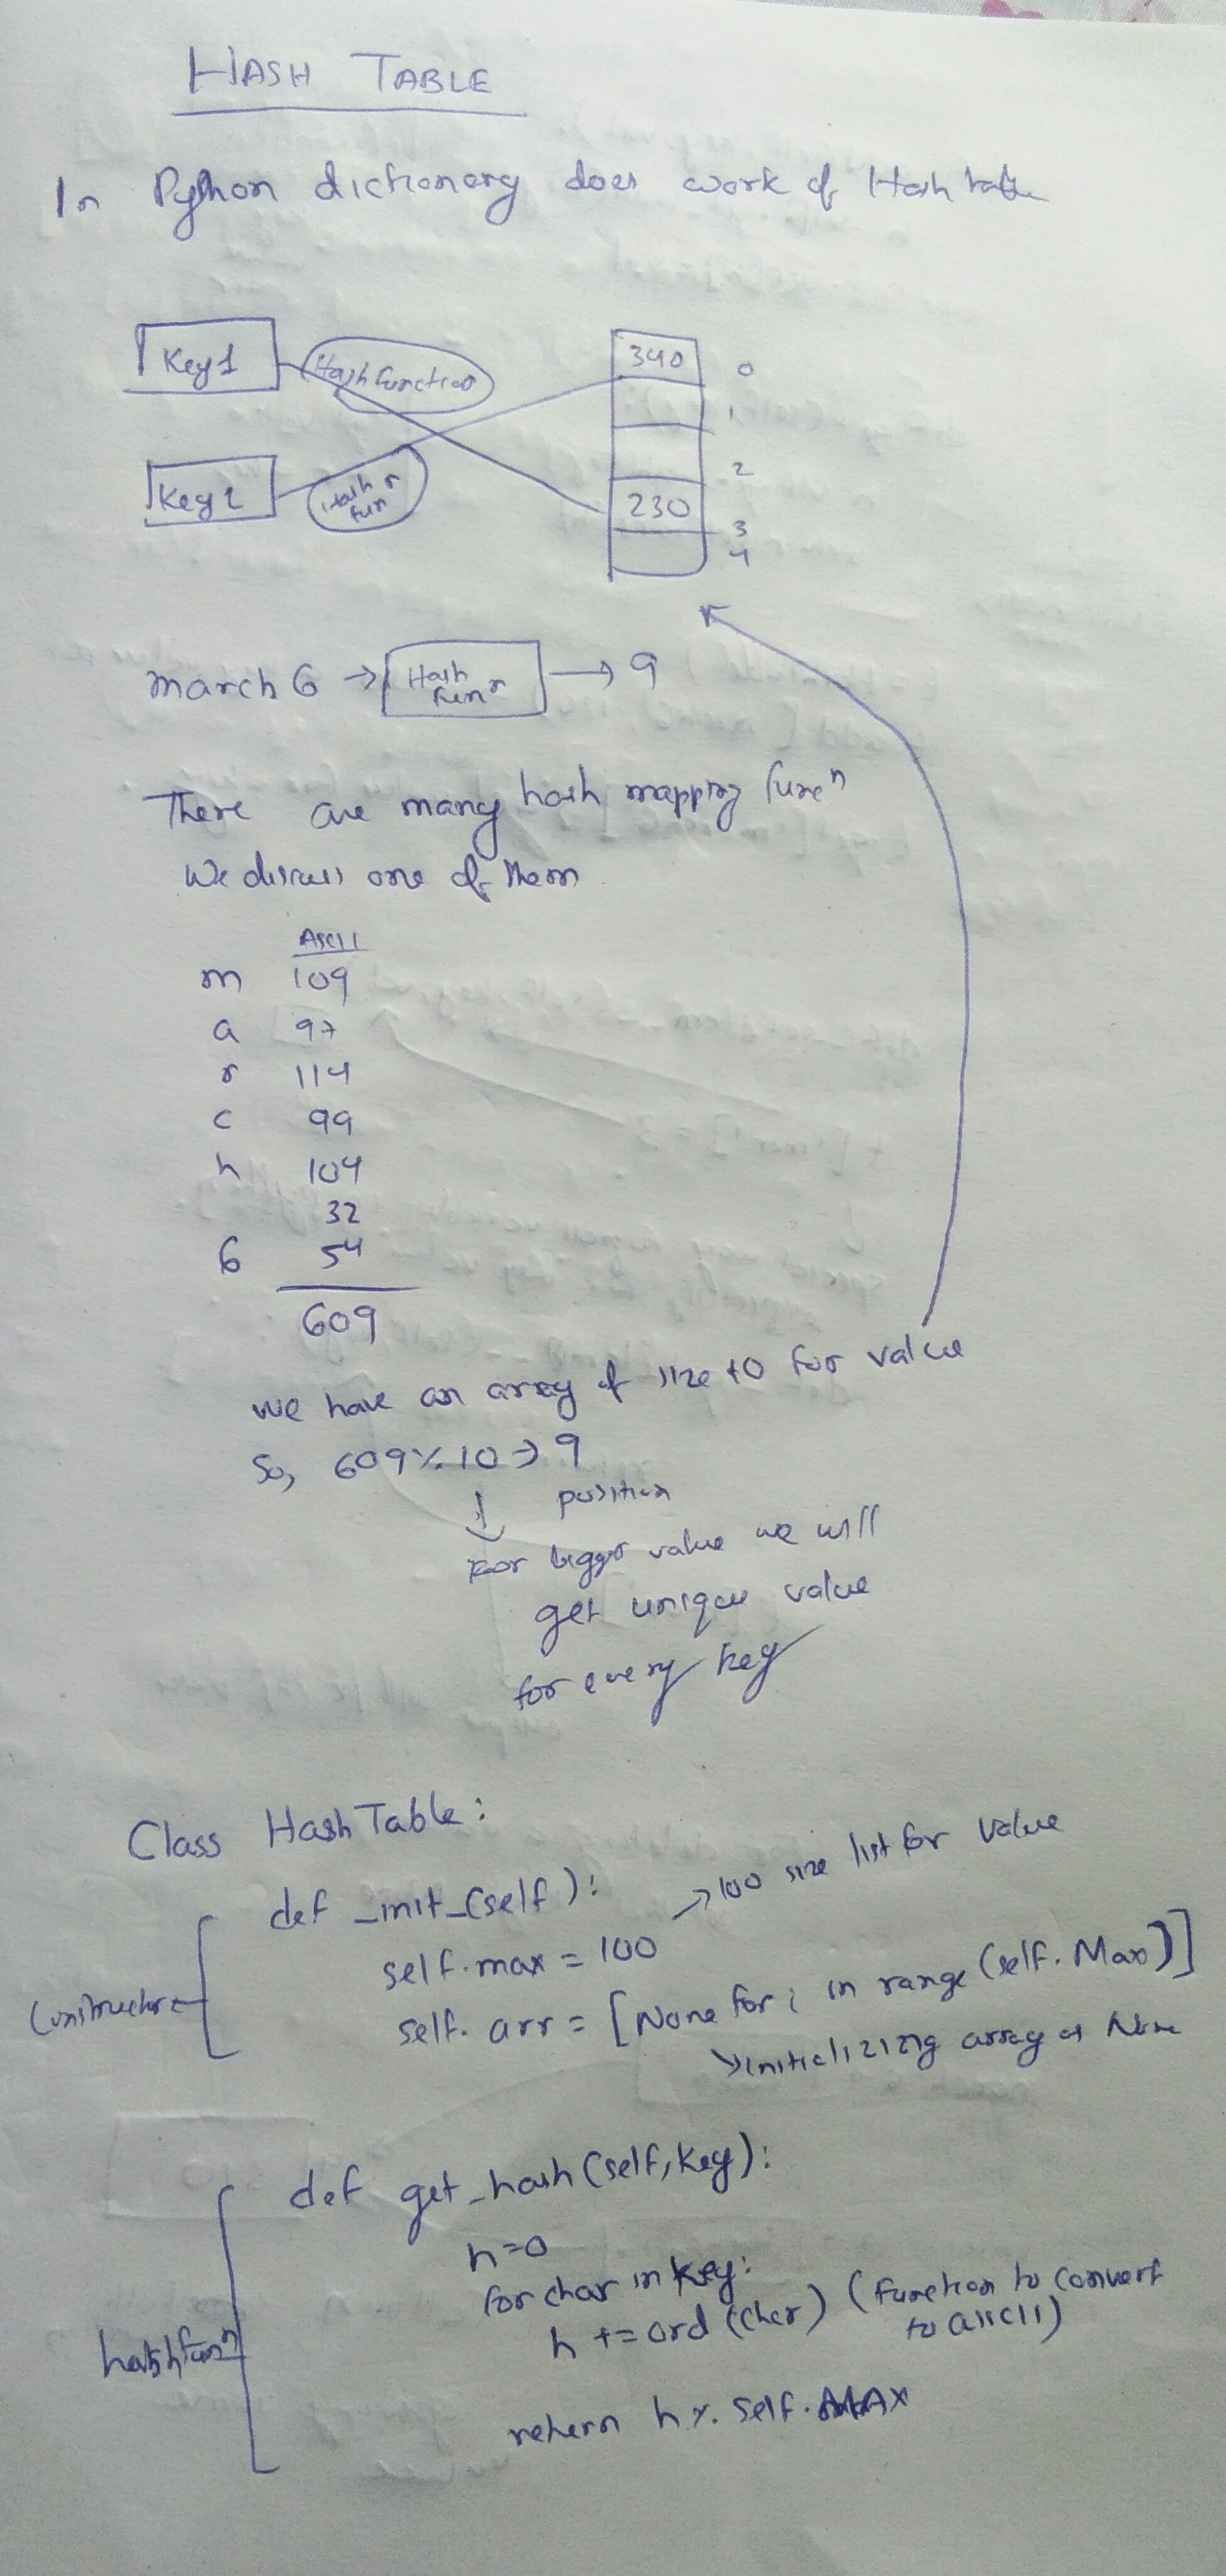 HASH TABLE
In Python dictionary does work of Hash table
Key1
Hash Function
340
0
1
2
Key2
Hash
fun
230
3
4
march 6 → Hash funⁿ → 9
There are many hash mapping funcⁿ
We discuss one of them
ASCII
m 109
a 97
r 114
c 99
h 104
32
6 54
609
we have an array of size 10 for value
So, 609%10 → 9
position
For bigger value we will
get unique value
for every key
Class HashTable:
def _init_(self):
self.max = 100 → 100 size list for value
Constructor
self.arr = [None for i in range (self.Max)]
→ initializing array as None
def get_hash(self, key):
h=0
for char in key:
h += ord(char) (function to convert
to ascii)
hashfunⁿ
return h % self.MAX